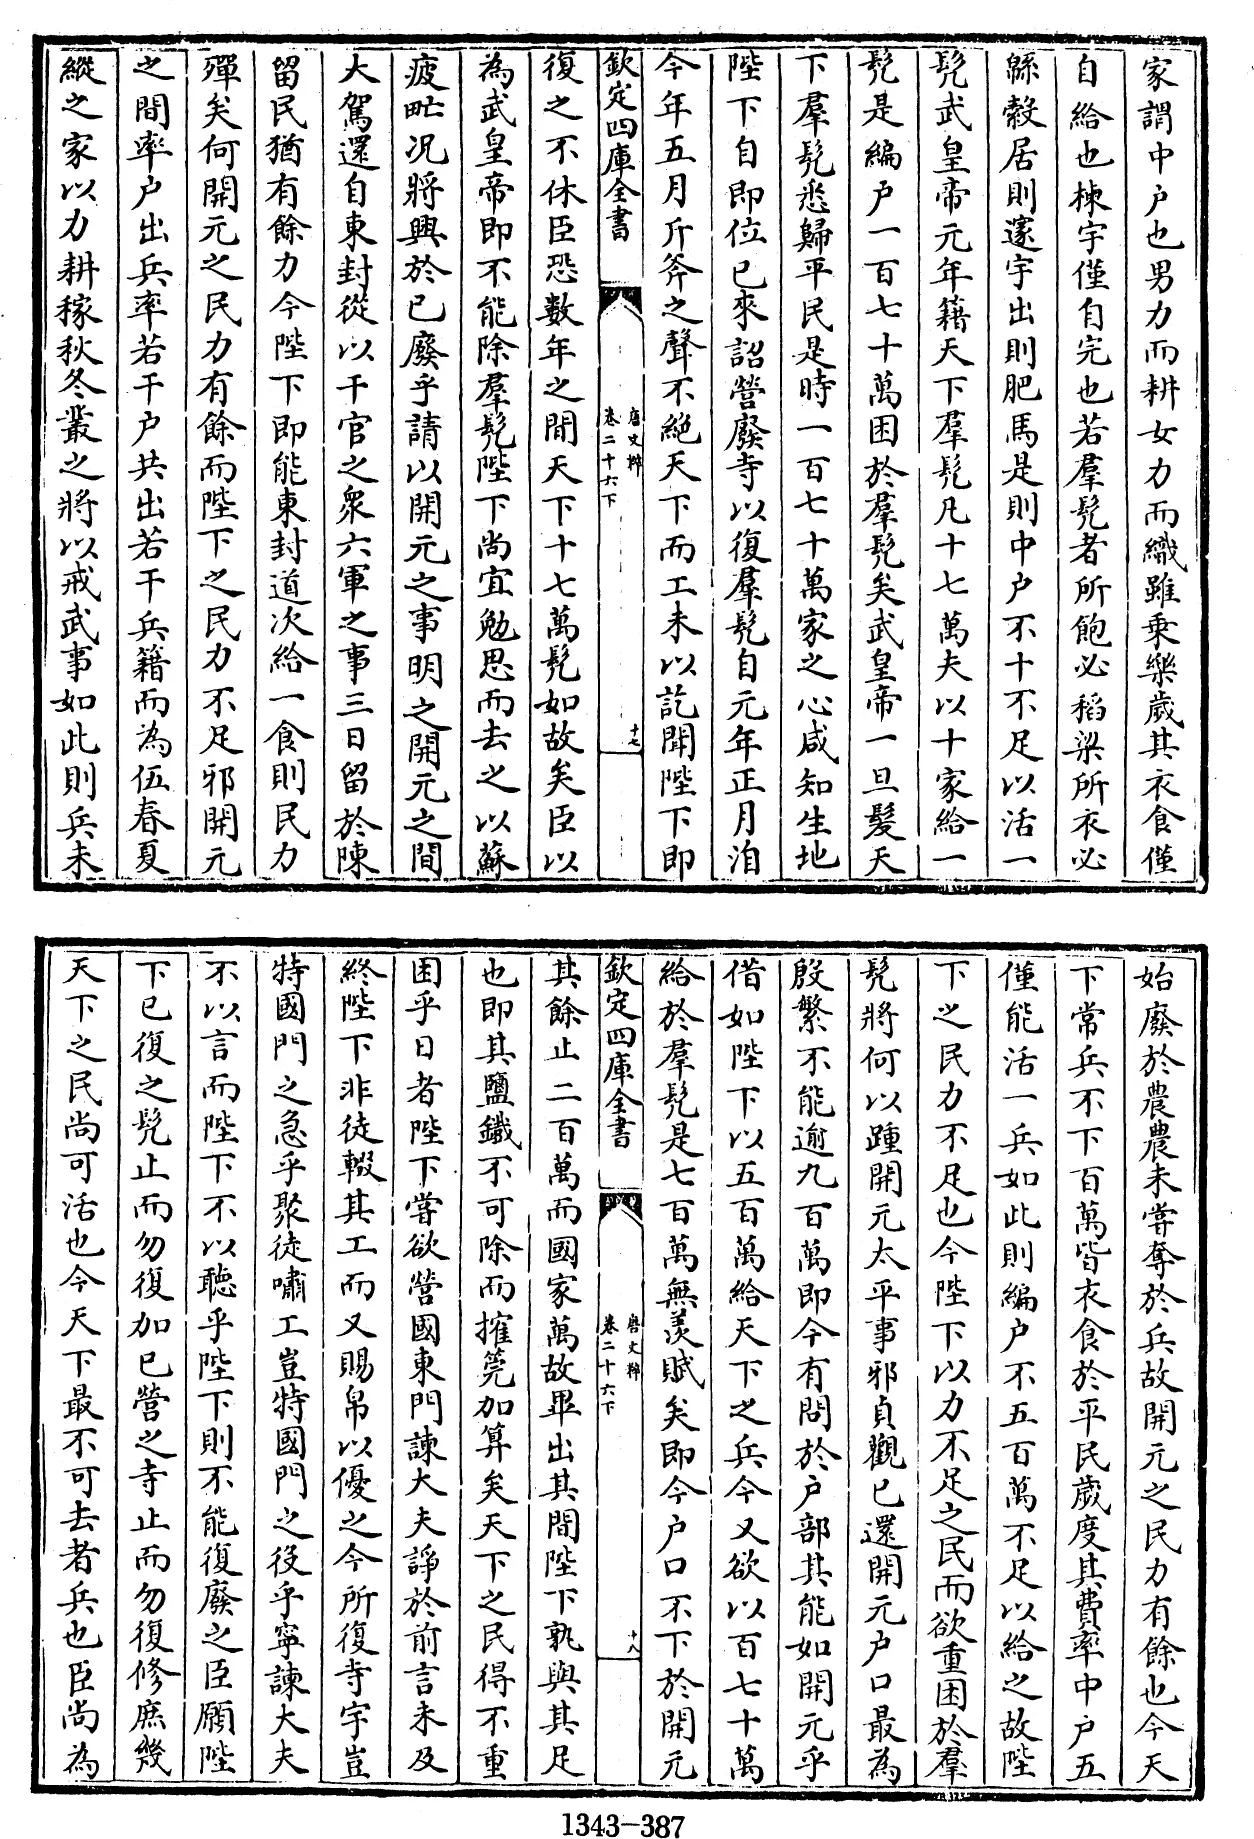 家謂中户也男力而耕女力而織雖乗樂歲其衣食僅
自給也棟宇僅自完也若羣髡者所飽必稻粱所衣必
緜縠居則邃宇出則肥馬是則中户不十不足以活一
髡武皇帝元年籍天下羣髡凡十七萬夫以十家給一
髡是編户一百七十萬困於羣髡矣武皇帝一旦髮天
下羣髡悉歸平民是時一百七十萬家之心咸知生地
陛下自即位已來詔營廢寺以復羣髡自元年正月洎
今年五月斤斧之聲不絶天下而工未以訖聞陛下即
欽定四庫全書
唐文粹
卷二十六下
十七
復之不休臣恐數年之間天下十七萬髡如故矣臣以
為武皇帝即不能除羣髡陛下尚宜勉思而去之以蘇
疲甿况將興於已廢乎請以開元之事明之開元之間
大駕還自東封從以千官之衆六軍之事三日留於陳
留民猶有餘力今陛下即能東封道次給一食則民力
殫矣何開元之民力有餘而陛下之民力不足邪開元
之間率户出兵率若干户共出若干兵籍而為伍春夏
縱之家以力耕稼秋冬叢之將以戒武事如此則兵未
始廢於農農未嘗奪於兵故開元之民力有餘也今天
下常兵不下百萬皆衣食於平民歲度其費率中户五
僅能活一兵如此則編户不五百萬不足以給之故陛
下之民力不足也今陛下以力不足之民而欲重困於羣
髡將何以踵開元太平事邪貞觀已還開元户口最為
殷繁不能逾九百萬即今有問於户部其能如開元乎
借如陛下以五百萬給天下之兵今又欲以百七十萬
給於羣髡是七百萬無羨賦矣即今户口不下於開元
欽定四庫全書
唐文粹
卷二十六下
十八
其餘止二百萬而國家萬故畢出其間陛下孰與其足
也即其鹽鐵不可除而搉筦加算矣天下之民得不重
困乎日者陛下嘗欲營國東門諫大夫諍於前言未及
終陛下非徒輟其工而又賜帛以優之今所復寺宇豈
特國門之急乎聚徒嘯工豈特國門之役乎寧諫大夫
不以言而陛下不以聽乎陛下則不能復廢之臣願陛
下已復之髡止而勿復加已營之寺止而勿復修庶幾
天下之民尚可活也今天下最不可去者兵也臣尚為
1343-387